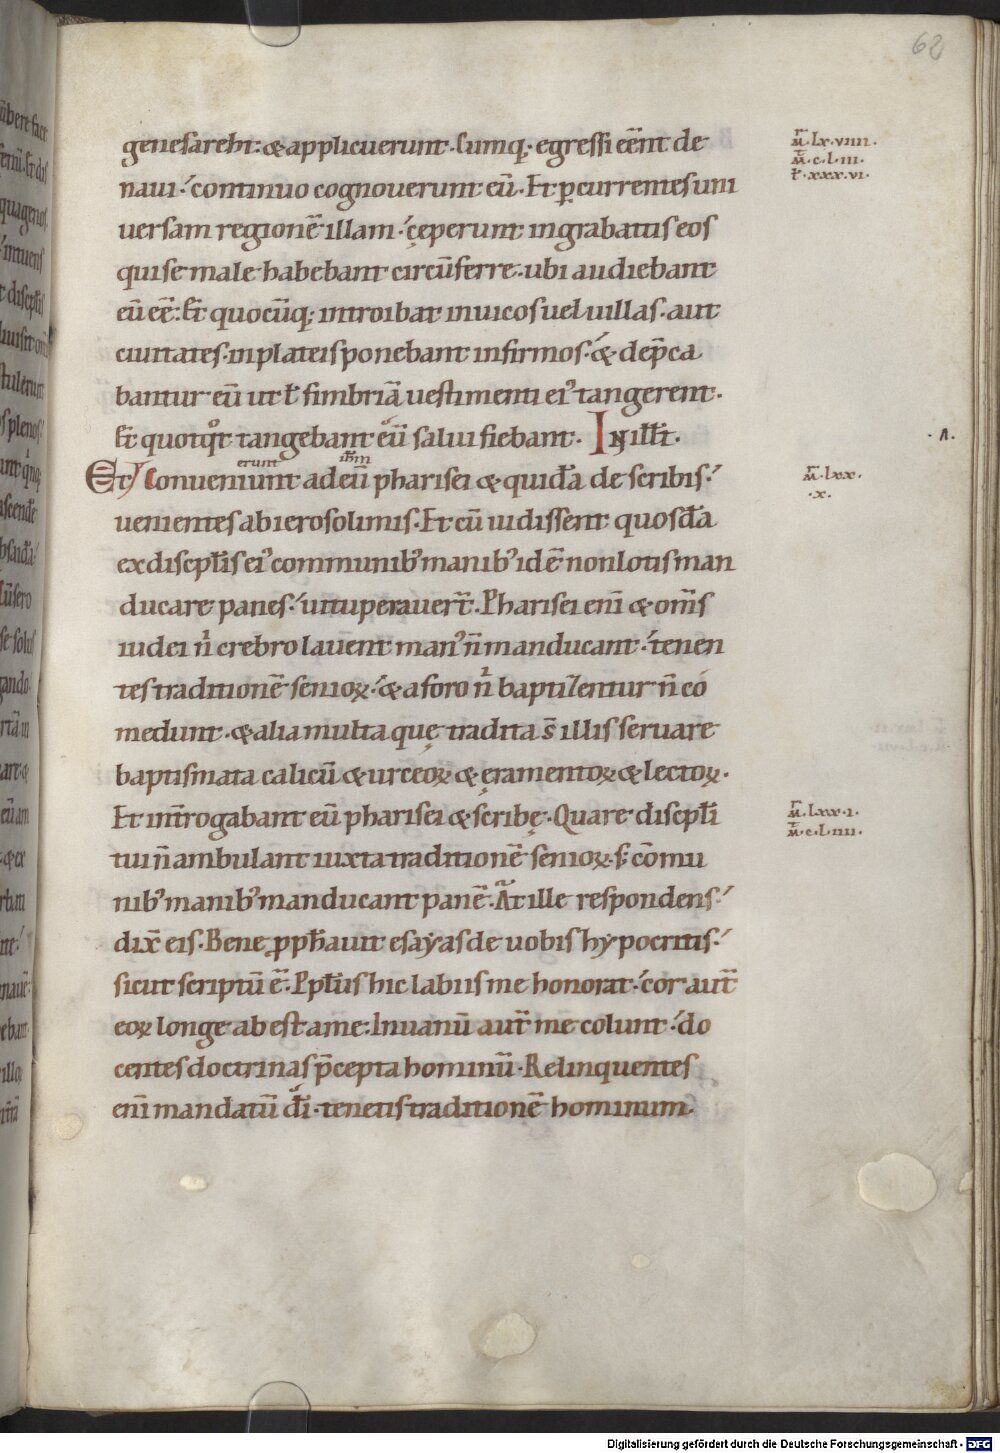 62
genesareht: & applicuerunt. Cumq; egressi eēnt de
naui: continuo cognouerunt eū. Et p̄currentes uni
uersam regionē illam: cęperunt in grabattis eos
qui se male habebant circūferre. ubi audiebant
eū eē. Et quocūq; introibat in uicos uel uillas. aut
ciuitates. in plateis ponebant infirmos. & dep̄ca
bantur eū ut ł fimbriā uestimenti ei᾽ tangerent.
Et quotqͦt tangebant eū salui fiebant. IN ill̄t.
m̄. lx. viiii.
m̄. c. l. iii.
ł. xxx. vi.
Et Conueniunt ad eū pharisei & quidā de scribis:
erunt
ih̄m
uenientes ab ierosolimis. Et cū uidissent quosdā
ex discipłis ei᾽ communib᾽ manib᾽ idē non lotis man
ducare panes: uituperauer̄t. Pharisei eni̅ & om̄s
iudei ni crebro lauent man᾽ n̄ manducant: tenen
tes traditionē senioꝝ: & a foro ni baptizentur n̄ co
medunt. & alia multa quę tradita s̄ illis seruare
baptismata calicū & urceoꝝ & ęramentoꝝ & lectoꝝ.
Et int̄rogabant eū pharisei & scribę. Quare discipłi
tui n̄ ambulant iuxta traditionē senioꝝ. s; cōmu
nib᾽ manib᾽ manducant panē. At ille respondens:
dix̄ eis. Bene ꝓph̄auit esayas de uobis hypocritis:
sicut scriptū ē. Ppłus hic labiis me honorat: cor aut̄
eoꝝ longe abest a me. In uanū aut̄ me colunt: do
centes doctrinas p̄cepta hominū. Relinquentes
eni̅ mandatū dī. tenetis traditionē hominum.
m̄. lxx.
.x.
m̄. lxx. i.
m̄. c. l. iiii.
Digitalisierung gefördert durch die Deutsche Forschungsgemeinschaft - DFG